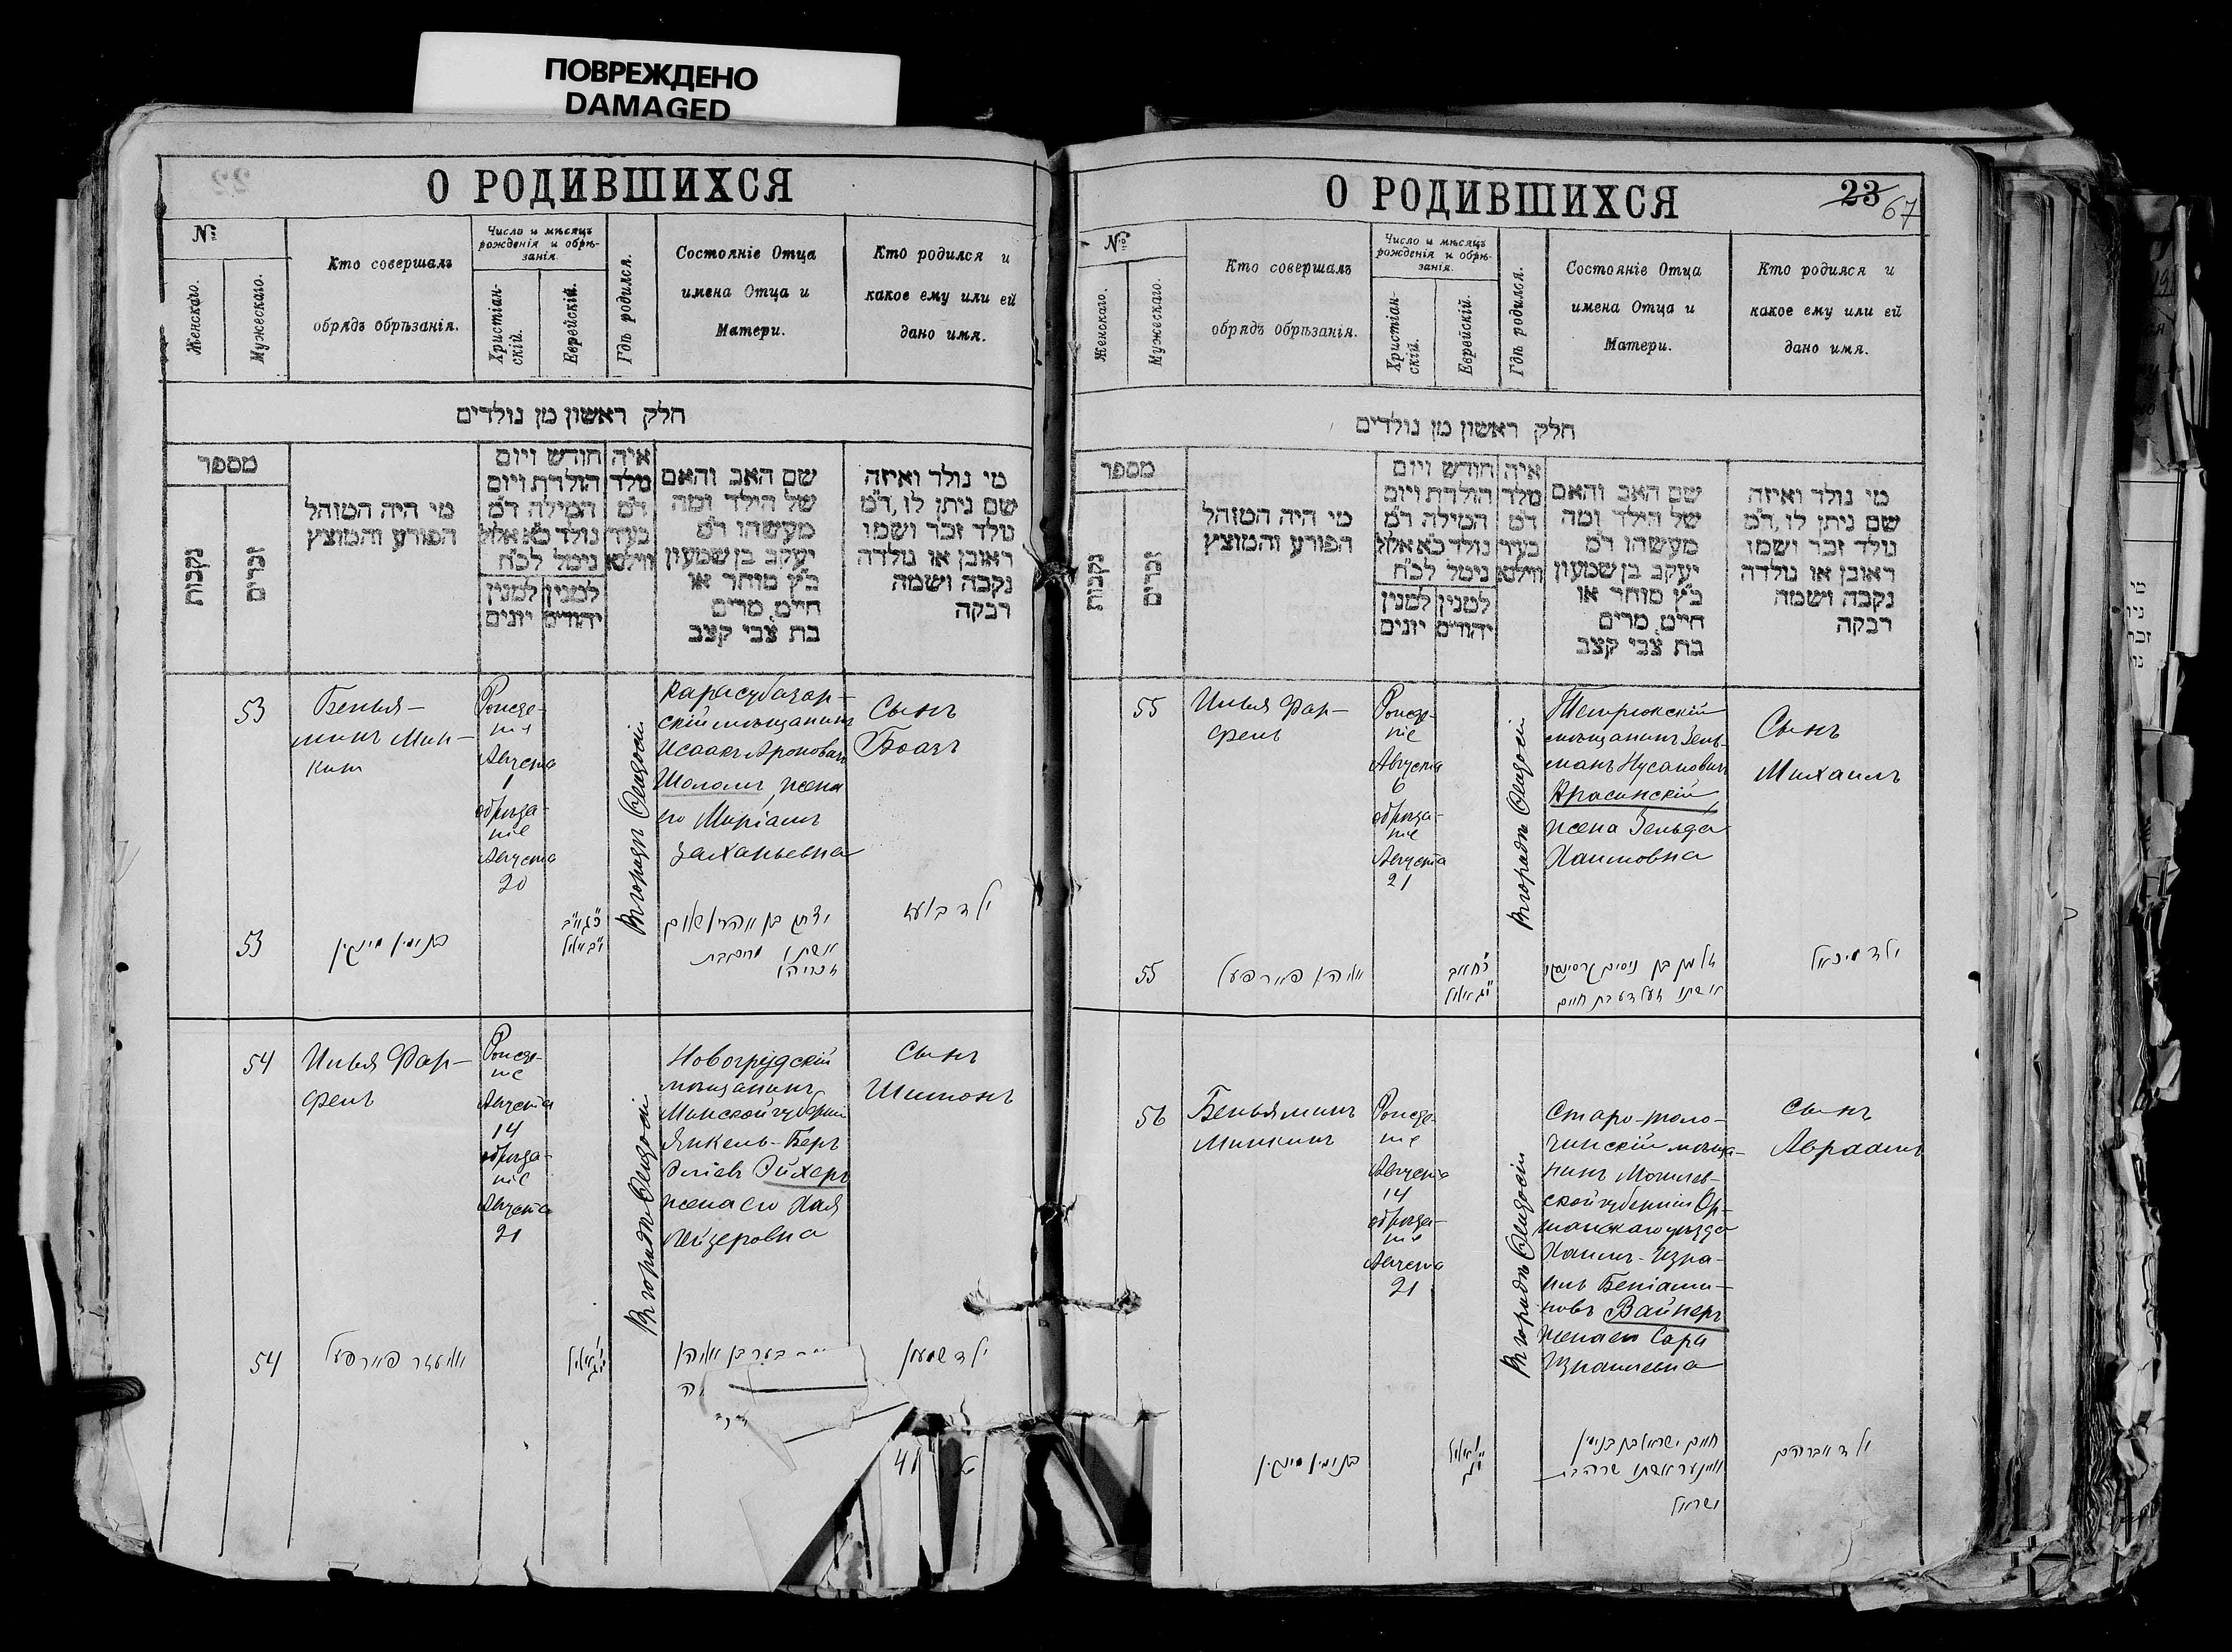 ПОВРЕЖДЕНО
DAMAGED
О РОДИВШИХСЯ
№
Женскаго.
Мужескаго.
Кто совершалъ
обрядъ обрѣзанія.
Число и мѣсяцъ
рожденія и обрѣ-
занія.
Христіан-
скій.
Еврейскій.
Гдѣ родился.
Состояніе Отца
имена Отца и
Матери.
Кто родился и
какое ему или ей
дано имя.
חלק ראשון מן נולדים
מספר
נקבות
זכרים
מי היה המוהל
הפורע והמוצץ
חודש ויום
הולדת ויום
המילה ד״מ
נולד כ״א אלול
נימל לכ״ח
למנין
יהודים
למנין
יונים
איה
מלד
ד״מ
בעיר
ווילנא
שם האב והאם
של הילד ומה
מעשהו ד״מ
יעקב בן שמעון
כ״ץ סוחר או
חייט, מרים
בת צבי קצב
מי נולד ואיזה
שם ניתן לו, ד״מ
נולד זכר ושמו
ראובן או נולדה
נקבה ושמה
רבקה
53
Бенья-
минъ Мин-
кин
Рожде-
ніе
Августа
1
обрѣза-
ніе
Августа
20
Въ городѣ Ѳеодосіи
Карасубазар-
скій мѣщанинъ
Исаакъ Ароновичъ
Шоломъ, жена
его Миріамъ
Захарьевна
Сынъ
Боазъ
53
בנימין מינקין
יצחק בן אהרן שאלום
אשתו מרים בת
זכריה
ילד בועז
54
Илья Фар-
фель
Рожде-
ніе
Августа
14
обрѣза-
ніе
Августа
21
Въ городѣ Ѳеодосіи
Новогрудскій
мѣщанинъ
Минской губерніи
Янкель-Беръ
Эліевъ Эйхеръ
жена его Хая
Лейзеровна
Сынъ
Шимонъ
54
פארפעל
בער בן אליהו
ילד שמעון
41
О РОДИВШИХСЯ
23
67
№
Женскаго.
Мужескаго.
Кто совершалъ
обрядъ обрѣзанія.
Число и мѣсяцъ
рожденія и обрѣ-
занія.
Христіан-
скій.
Еврейскій.
Гдѣ родился.
Состояніе Отца
имена Отца и
Матери.
Кто родился и
какое ему или ей
дано имя.
חלק ראשון מן נולדים
מספר
נקבות
זכרים
מי היה המוהל
הפורע והמוצץ
חודש ויום
הולדת ויום
המילה ד״מ
נולד כ״א אלול
נימל לכ״ח
למנין
יהודים
למנין
יונים
איה
מלד
ד״מ
בעיר
ווילנא
שם האב והאם
של הילד ומה
מעשהו ד״מ
יעקב בן שמעון
כ״ץ סוחר או
חייט, מרים
בת צבי קצב
מי נולד ואיזה
שם ניתן לו, ד״מ
נולד זכר ושמו
ראובן או נולדה
נקבה ושמה
רבקה
55
Илья Фар-
фель
Рожде-
ніе
Августа
6
обрѣза-
ніе
Августа
21
Въ городѣ Ѳеодосіи
Темрюкскій
мѣщанинъ Зель-
манъ Нусановичъ
Красинскій,
жена Зельда
Хаимовна
Сынъ
Михаилъ
55
אליהו פארפעל
זלמן בן ניסים קרסינסקי
אשתו זעלדע בת חיים
ילד מיכאל
56
Беньяминъ
Минкинъ
Рожде-
ніе
Августа
14
обрѣза-
ніе
Августа
21
Въ городѣ Ѳеодосіи
Старо-толо-
чинскій мѣща-
нинъ Могилев-
ской губерніи Ор-
шанскаго уѣзда
Хаимъ-Изра-
иль Беніами-
новъ Вайнеръ
жена его Сара
Израилевна
Сынъ
Авраамъ
בנימין מינקין
חיים ישראל בן בנימין
וויינער אשתו שרה בת
ישראל
ילד אברהם